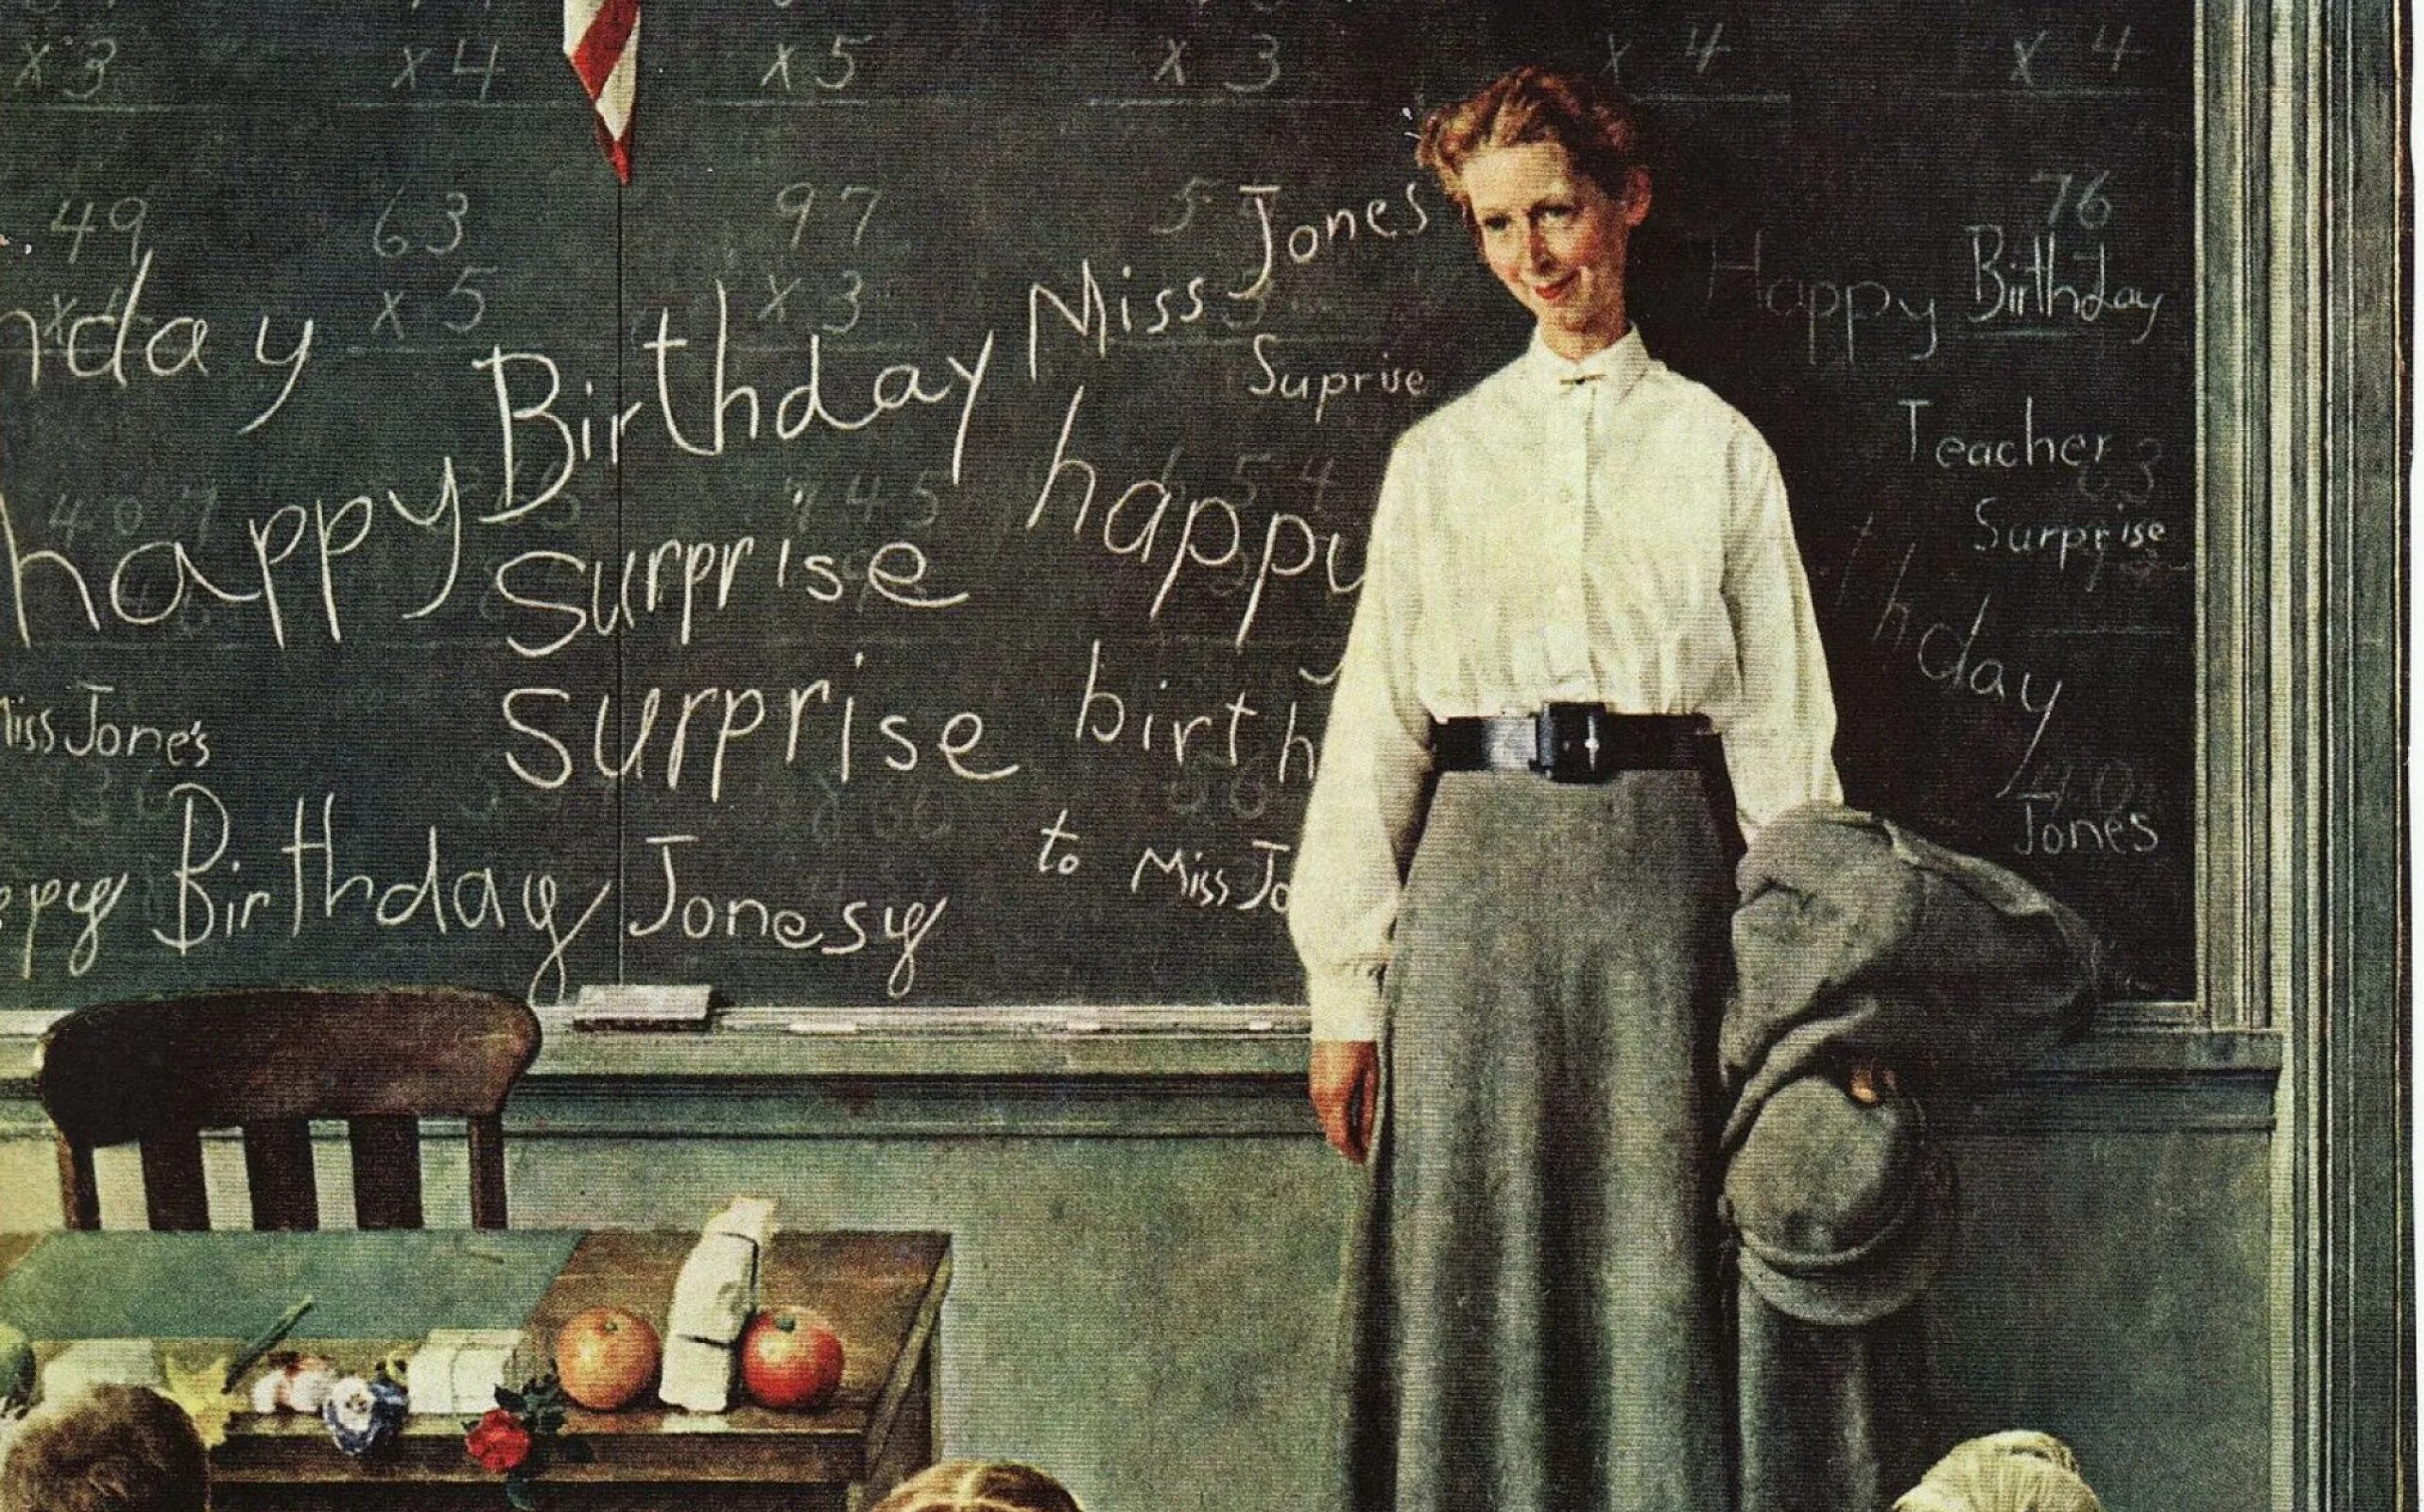 x 3 x 4 x 5 x 3 x 4 x 4
49 63 97 76
x 5 x 3
Jones
Miss
Happy Birthday
hday
Birthday
Suprise
happy
Teacher
happy
Surprise
Surprise
hday
surprise
birth
Miss Jone's
Jones
to Miss Jo
ppy Birthday Jonesy